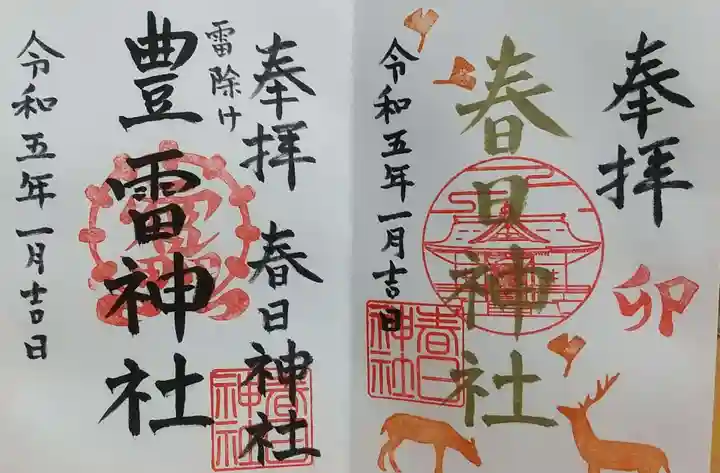 奉拝
卯
春日神社
令和五年一月吉日
春日神社
奉拝
春日神社
雷除け
豊雷神社
令和五年一月吉日
春日神社